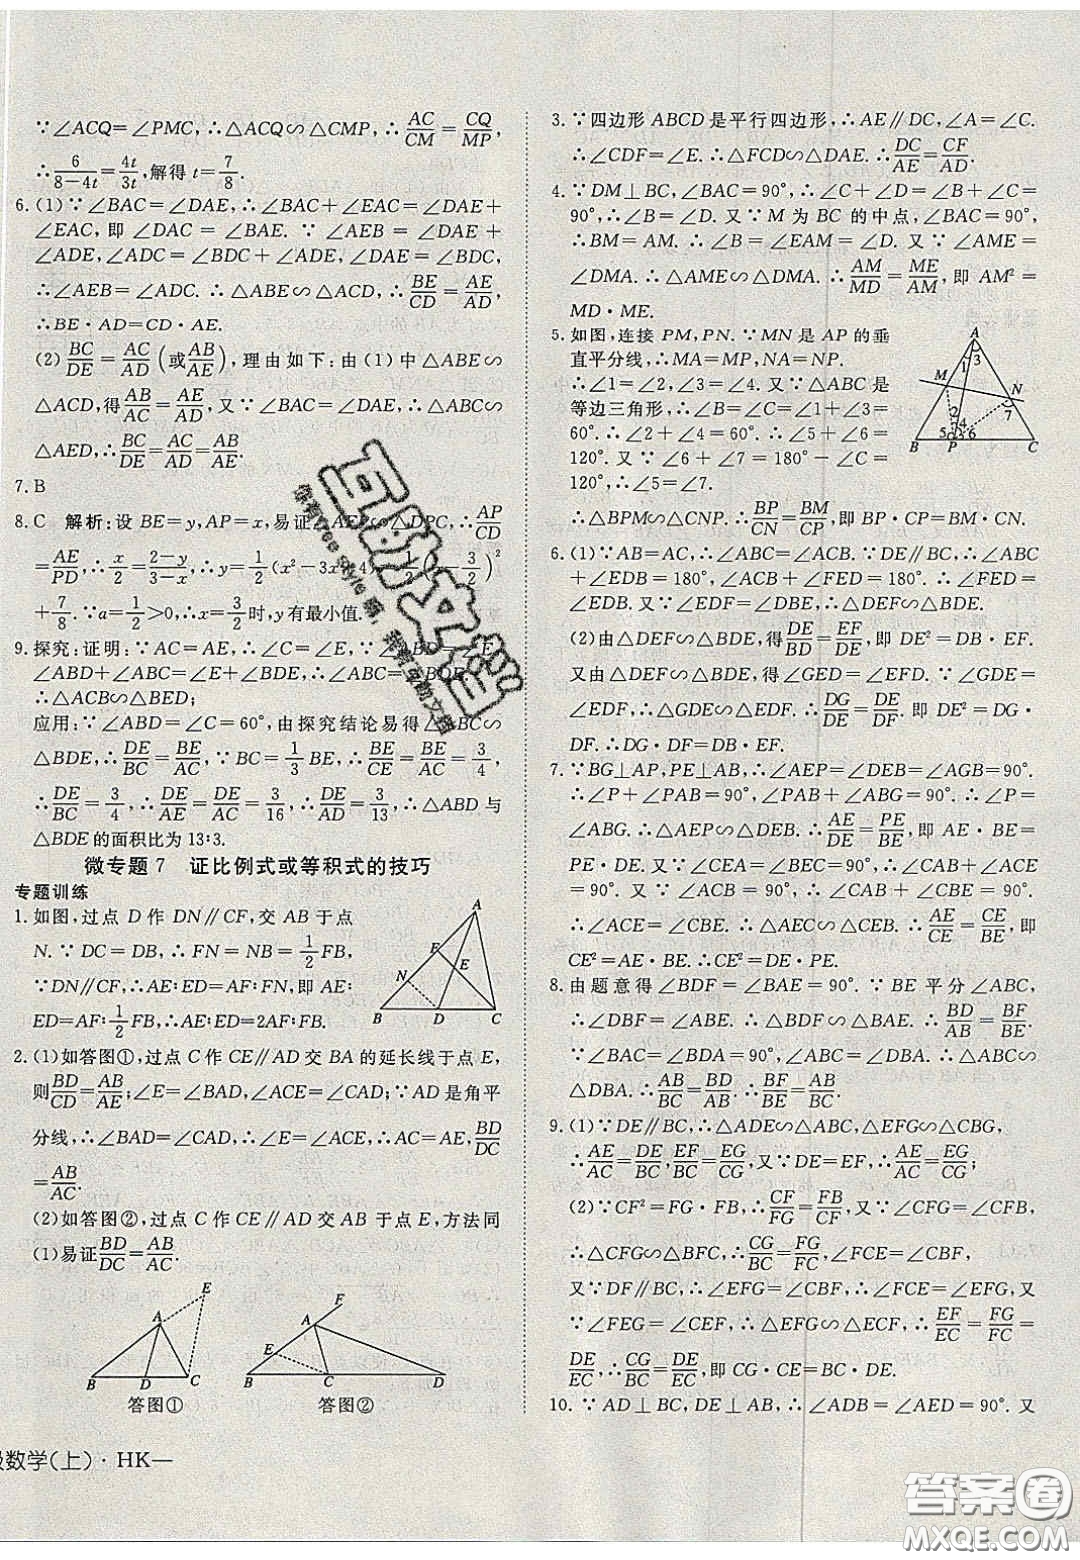 ∵∠ACQ=∠PMC,∴△ACQ∽△CMP,∴AC/CM=CQ/MP.
∴6/(8-4t)=4t/3t,解得 t=7/8.
6. (1)∵∠BAC=∠DAE,∴∠BAC+∠EAC=∠DAE+
∠EAC,即∠DAC=∠BAE. ∵∠AEB=∠ADE+
∠ADE,∠ADC=∠BDC+∠ADE,∠DAE=∠BDC,
∴∠AEB=∠ADC. ∴△ABE∽△ACD,∴BE/CD=AE/AD.
∴BE·AD=CD·AE.
(2)BC/DE=AC/AD(或AB/AE),理由如下:由(1)中△ABE∽
△ACD,得AB/AC=AE/AD,又∵∠BAC=∠DAE,∴△ABC∽
△AED,∴BC/DE=AC/AD=AB/AE.
7. B
8. C 解析:设 BE=y,AP=x,易证△AEP∽△DPC,∴AP/CD
=AE/PD,∴x/2=(2-y)/(3-x),∴y=1/2(x²-3x+4)=1/2(x-3/2)²
+7/8.∵a=1/2>0,∴x=3/2时,y有最小值.
9. 探究:证明:∵AC=AE,∴∠C=∠E,∵∠BAE=∠E+
∠ABD+∠ABC=∠E+∠BDE,∴∠ABC=∠BDE.
∴△ACB∽△BED;
应用:∵∠ABD=∠C=60°,由探究结论易得△ABC∽
△BDE,∴DE/BC=BE/AC,∵BC=1/3BE,∴BE/CE=BE/AC=3/4,
∴DE/BC=3/4,∴DE/AE=DE/AC=3/16,∴DE/AD=3/13,∴△ABD与
△BDE的面积比为13:3.
微专题7 证比例式或等积式的技巧
专题训练
1. 如图,过点 D 作 DN∥CF,交 AB 于点
N. ∵DC=DB,∴FN=NB=1/2FB,
∵DN∥CF,∴AE:ED=AF:FN,即 AE:
ED=AF:1/2FB,∴AE:ED=2AF:FB.
A
F
E
N
B D C
2. (1)如答图①,过点 C 作 CE∥AD 交 BA 的延长线于点 E,
则BD/CD=AB/AE;∠E=∠BAD,∠ACE=∠CAD;∵AD 是角平
分线,∴∠BAD=∠CAD,∴∠E=∠ACE,∴AC=AE,BD/DC
=AB/AC.
(2)如答图②,过点 C 作 CE∥AD 交 AB 于点 E,方法同
(1)易证BD/DC=AB/AC.
E
A
B D C
答图①
F
A
E
B C D
答图②
级数学(上)·HK—
3. ∵四边形 ABCD 是平行四边形,∴AE∥DC,∠A=∠C.
∴∠CDF=∠E. ∴△FCD∽△DAE. ∴DC/AE=CF/AD.
4. ∵DM⊥BC,∠BAC=90°,∴∠C+∠D=∠B+∠C=
90°,∴∠B=∠D. 又∵M 为 BC 的中点,∠BAC=90°,
∴BM=AM. ∴∠B=∠EAM=∠D. 又∵∠AME=
∠DMA. ∴△AME∽△DMA. ∴AM/MD=ME/AM,即 AM²=
MD·ME.
5. 如图,连接 PM,PN. ∵MN 是 AP 的垂
直平分线,∴MA=MP,NA=NP.
∴∠1=∠2,∠3=∠4. 又∵△ABC 是
等边三角形,∴∠B=∠C=∠1+∠3=
60°. ∴∠2+∠4=60°. ∴∠5+∠6=
120°. 又∵∠6+∠7=180°-∠C=
120°,∴∠5=∠7.
∴△BPM∽△CNP. ∴BP/CN=BM/CP,即 BP·CP=BM·CN.
A
1 3
M
N
2 4
5 6 7
B P C
6. (1)∵AB=AC,∴∠ABC=∠ACB. ∵DE∥BC,∴∠ABC
+∠EDB=180°,∠ACB+∠FED=180°. ∴∠FED=
∠EDB. 又∵∠EDF=∠DBE,∴△DEF∽△BDE.
(2)由△DEF∽△BDE,得DE/BD=EF/DE,即 DE²=DB·EF.
又由△DEF∽△BDE,得∠GED=∠EFD. ∵∠GDE=
∠EDF,∴△GDE∽△EDF. ∴DG/DE=DE/DF. 即 DE²=DG·
DF. ∴DG·DF=DB·EF.
7. ∵BG⊥AP,PE⊥AB,∴∠AEP=∠DEB=∠AGB=90°.
∴∠P+∠PAB=90°,∠PAB+∠ABG=90°. ∴∠P=
∠ABG. ∴△AEP∽△DEB. ∴AE/DE=PE/BE,即 AE·BE=
PE·DE. 又∵∠CEA=∠BEC=90°,∴∠CAB+∠ACE=
90°. ∵∠ACB=90°,∴∠CAB+∠CBE=90°.
∴∠ACE=∠CBE. ∴△AEC∽△CEB. ∴AE/CE=CE/BE,即
CE²=AE·BE. ∴CE²=DE·PE.
8. 由题意得∠BDF=∠BAE=90°. ∵BE 平分∠ABC,
∴∠DBF=∠ABE. ∴△BDF∽△BAE. ∴BD/AB=BF/BE.
∵∠BAC=∠BDA=90°,∠ABC=∠DBA. ∴△ABC∽
△DBA. ∴AB/BC=BD/AB. ∴BF/BE=AB/BC.
9. (1)∵DE∥BC,∴△ADE∽△ABC,△EFG∽△CBG,
∴AE/AC=DE/BC,EF/BC=EG/CG,又∵DE=EF,∴AE/AC=EG/CG;
(2)∵CF²=FG·FB,∴CF/FG=FB/CF,又∵∠CFG=∠CFB,
∴△CFG∽△BFC,∴CG/BC=FG/FC,∠FCE=∠CBF,
又∵DF∥BC,∴∠EFG=∠CBF,∴∠FCE=∠EFG,又
∵∠FEG=∠CEF,∴△EFG∽△ECF,∴EF/EC=FG/FC=
DE/EC,∴CG/BC=DE/EC,即 CG·CE=BC·DE.
10. ∵AD⊥BC,DE⊥AB,∴∠ADB=∠AED=90°. 又
答案圈
MXQE.COM